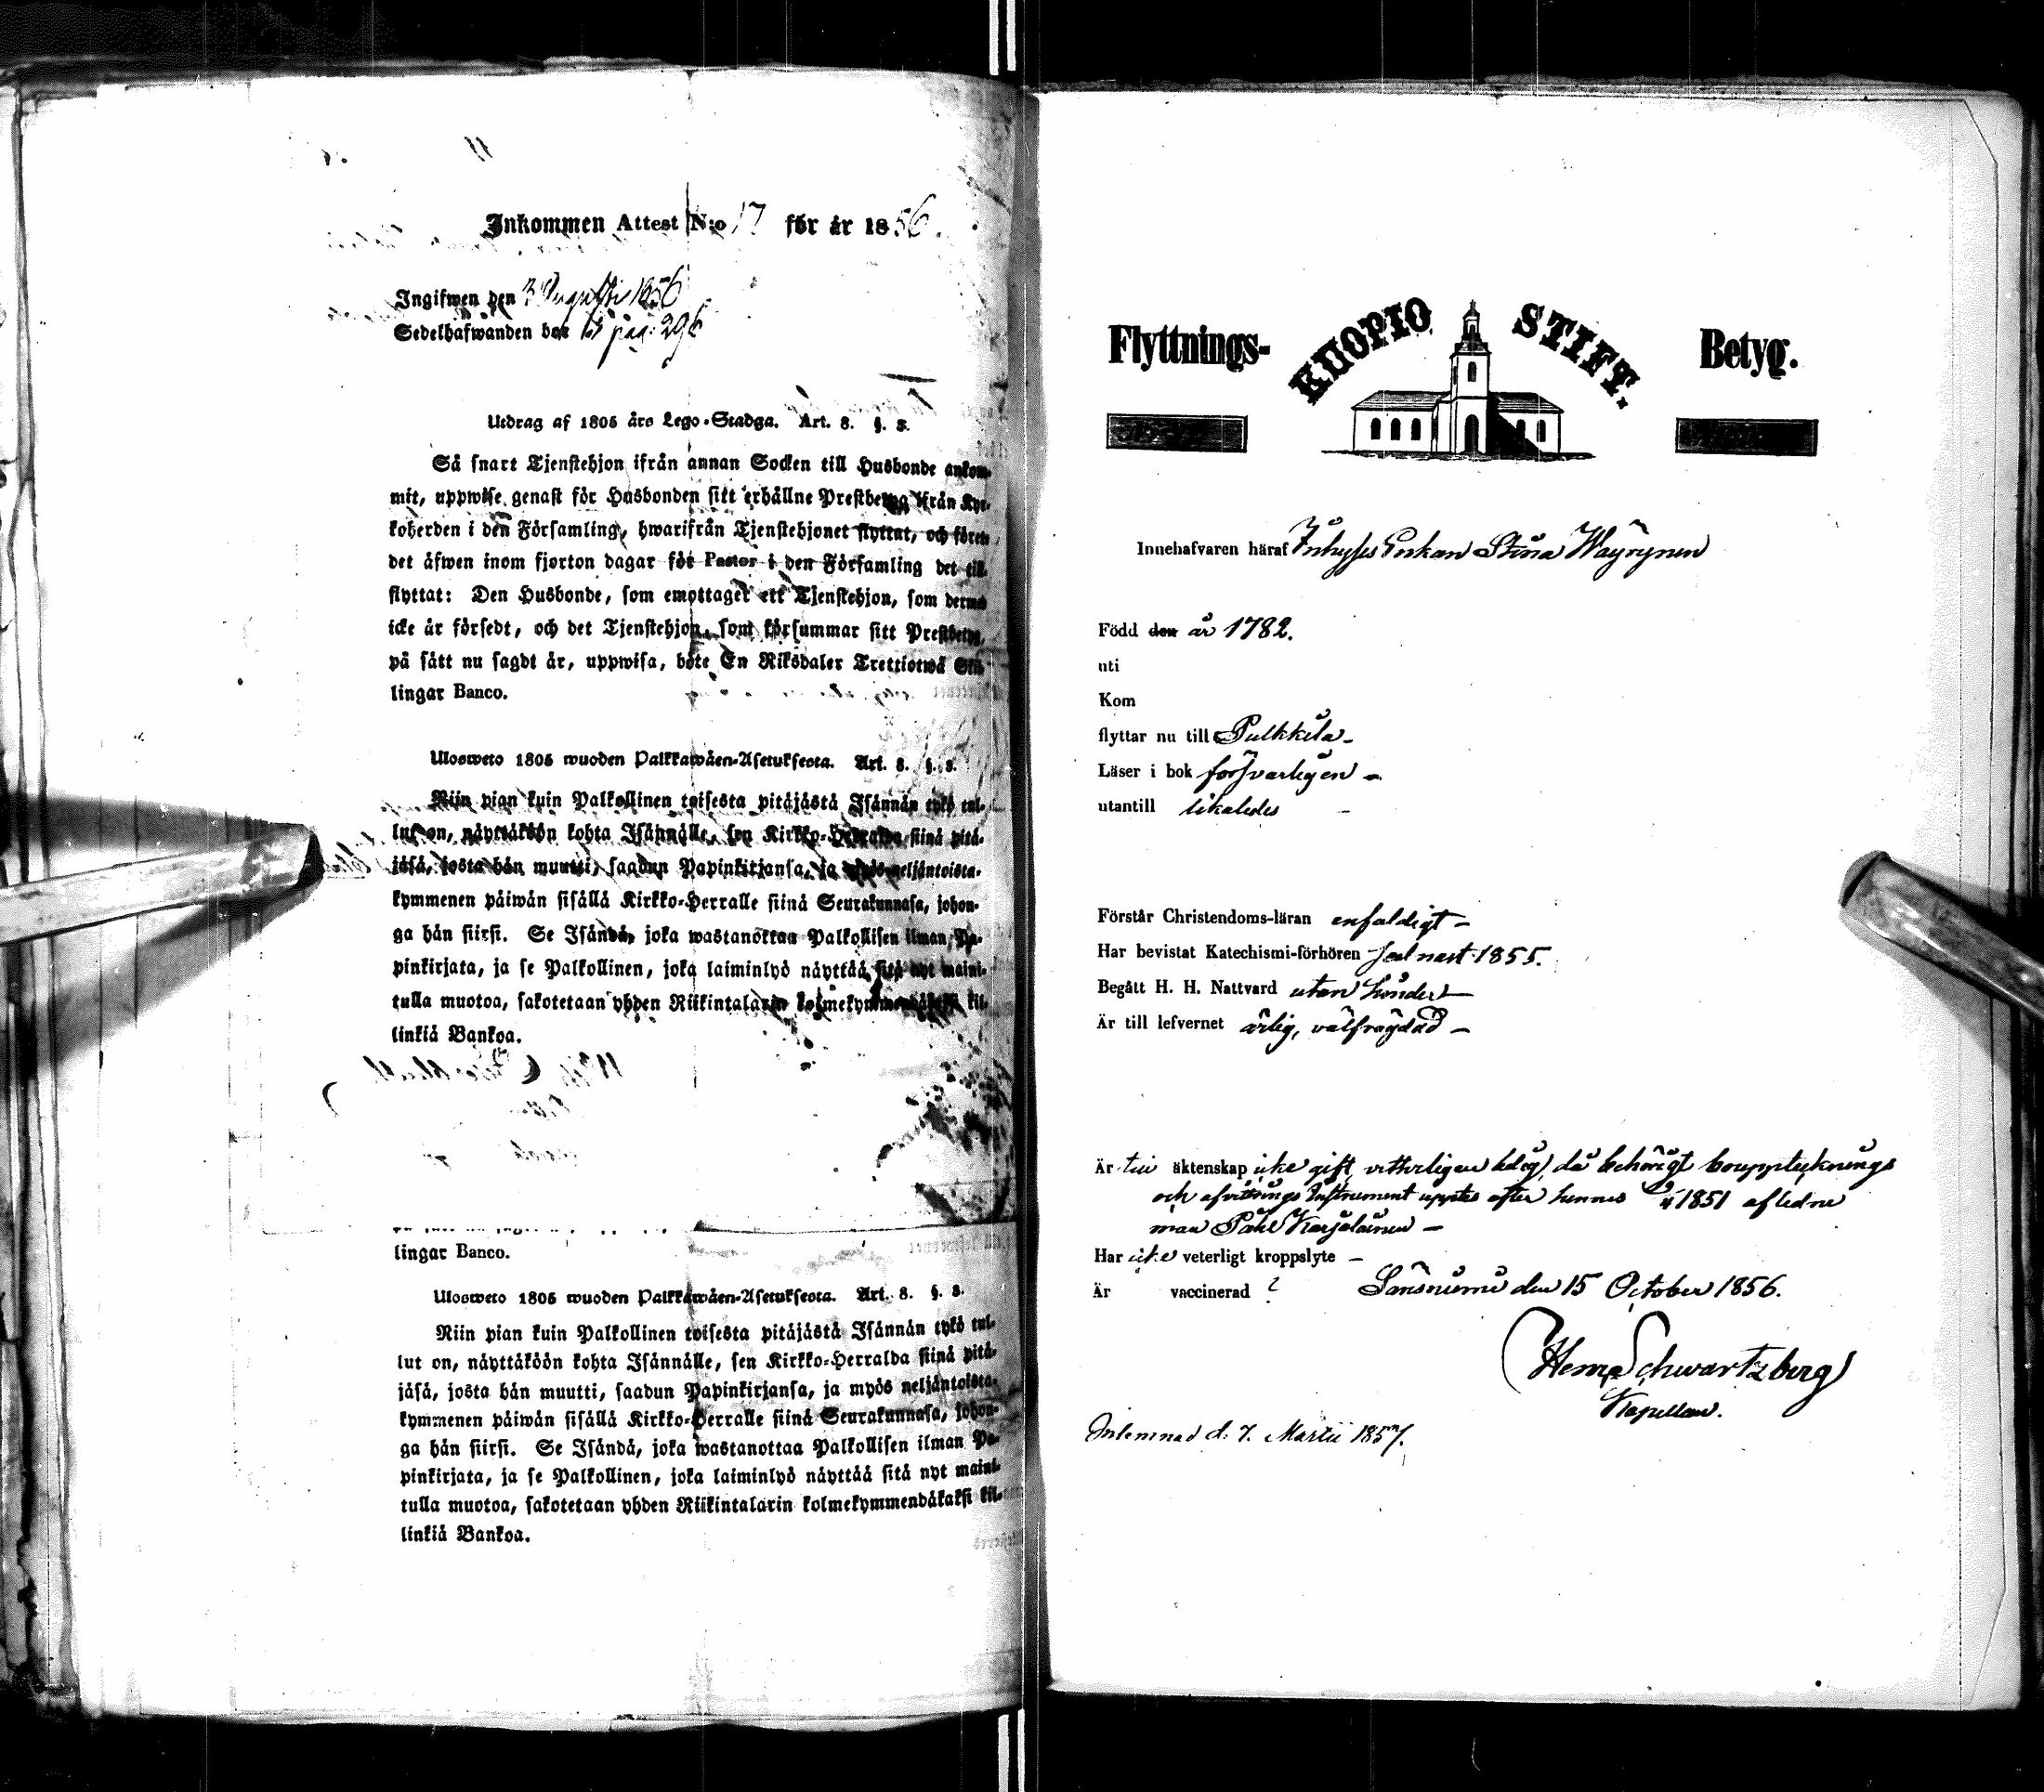 Inkommen Attest N:o 17 för år 1856.
Ingifwen den 3 Augusti 1856
Sedelhafwanden bor pag: 296
Utdrag af 1805 års Lego-Stadga. Art. 8. §. 3.
Så snart Tjenstehjon ifrån annan Socken till Husbonde ankom-
mit, uppwise genast för Husbonden sitt erhållne Prestbetyg ifrån Kyr-
koherden i den Församling, hwarifrån Tjenstehjonet flyttat, och förete
det äfwen inom fjorton dagar för Pastor i den Församling det till-
flyttat: Den Husbonde, som emottager ett Tjenstehjon, som dermed
icke är försedt, och det Tjenstehjon, som försummar sitt Prestbetyg,
på sätt nu sagdt är, uppwisa, böte En Riksdaler Trettiotwå Skil-
lingar Banco.
Ulosweto 1805 wuoden Palkkawäen-Asetuksesta. Art. 8. §. 3.
Niin pian kuin Palkollinen toisesta pitäjästä Isännän tykö tul-
lut on, näyttäköön kohta Isännälle, sen Kirkko-Herralda siinä pitä-
jäsä, josta hän muutti, saadun Papinkirjansa, ja myös neljäntoista-
kymmenen päiwän sisällä Kirkko-Herralle siinä Seurakunnasa, johon-
ga hän siirsi. Se Isändä, joka wastanottaa Palkollisen ilman Pa-
pinkirjata, ja se Palkollinen, joka laiminlyö näyttää sitä nyt maini-
tulla muotoa, sakotetaan yhden Riikintalarin kolmekymmendäkaksi kil-
linkiä Bankoa.
lingar Banco.
Ulosweto 1805 wuoden Palkkawäen-Asetuksesta. Art. 8. §. 3.
Niin pian kuin Palkollinen toisesta pitäjästä Isännän tykö tul-
lut on, näyttäköön kohta Isännälle, sen Kirkko-Herralda siinä pitä-
jäsä, josta hän muutti, saadun Papinkirjansa, ja myös neljäntoista-
kymmenen päiwän sisällä Kirkko-Herralle siinä Seurakunnasa, johon-
ga hän siirsi. Se Isändä, joka wastanottaa Palkollisen ilman Pa-
pinkirjata, ja se Palkollinen, joka laiminlyö näyttää sitä nyt maini-
tulla muotoa, sakotetaan yhden Riikintalarin kolmekymmendäkaksi kil-
linkiä Bankoa.
Flyttnings- KUOPIO STIFT. Betyg.
Innehafvaren häraf Inhyses Enkan Stina Wäyrynen
Född den år 1782.
uti
Kom
flyttar nu till Pulkkila
Läser i bok försvarligen
utantill likaledes
Förstår Christendoms-läran enfaldigt
Har bevistat Katechismi-förhören sednast 1855.
Begått H. H. Nattvard utan hinder
Är till lefvernet ärlig, välfrägdad
Är till äktenskap icke gift, vetterligen ledig, då behörigt bouppteknings
och afvittrings Instrument uppter efter hennes 1851 aflidne
man Påhl Karjalainen
Har icke veterligt kroppslyte
Är vaccinerad ?
Säräisniemi den 15 October 1856.
Henr Schwartzberg
Kapellan.
Inlemnad d. 7. Martii 1857.